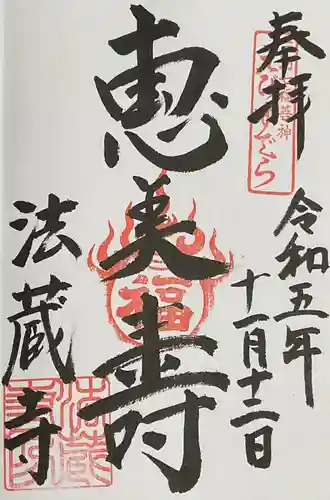 奉拝
令和五年
十一月十二日
恵美寿
福
法蔵寺
法蔵寺印